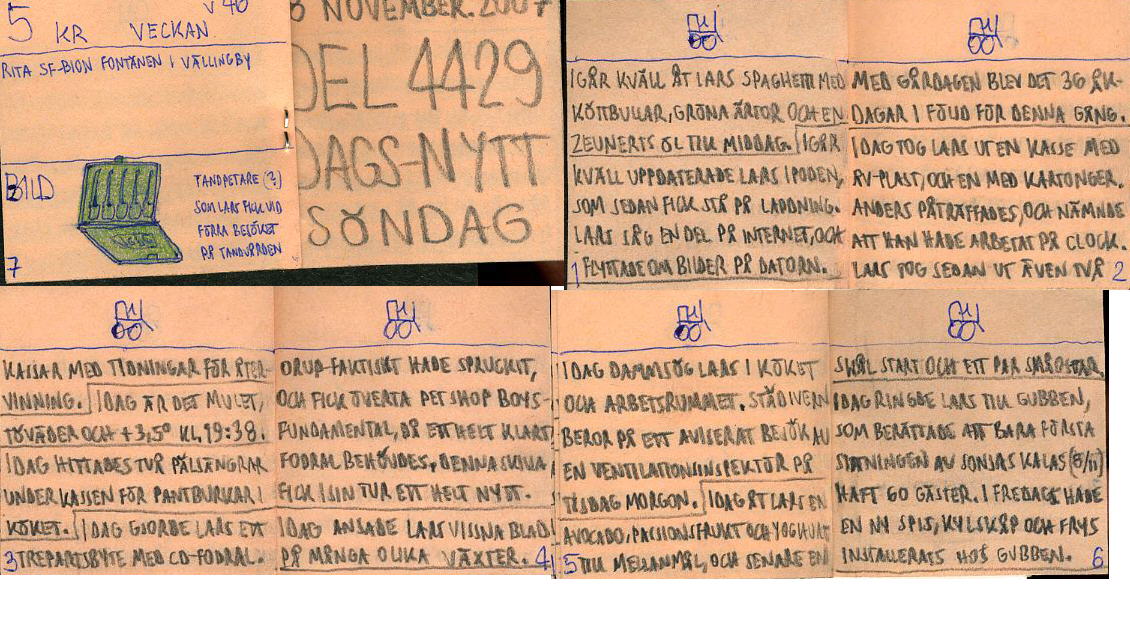 5 KR VECKAN V 46
RITA SF-BION FONTÄNEN I VÄLLINGBY
BILD
TANDPETARE (?)
SOM LARS FICK VID
FÖRRA BESÖKET
PÅ TANDVÅRDEN
7
NOVEMBER. 2007
DEL 4429
DAGS-NYTT
SÖNDAG
IGÅR KVÄLL ÅT LARS SPAGHETTI MED
KÖTTBULLAR, GRÖNA ÄRTOR OCH EN
ZEUNERTS ÖL TILL MIDDAG. IGÅR
KVÄLL UPPDATERADE LARS IPODEN,
SOM SEDAN FICK STÅ PÅ LADDNING.
LARS SÅG EN DEL PÅ INTERNET, OCH
FLYTTADE OM BILDER PÅ DATORN.
1
MED GÅRDAGEN BLEV DET 36 ÅK-
DAGAR I FÖLJD FÖR DENNA GÅNG.
IDAG TOG LARS UT EN KASSE MED
ÅV-PLAST, OCH EN MED KARTONGER.
ANDERS PÅTRÄFFADES, OCH NÄMNDE
ATT HAN HADE ARBETAT PÅ CLOCK.
LARS TOG SEDAN UT ÄVEN TVÅ
2
KASSAR MED TIDNINGAR FÖR ÅTER-
VINNING. IDAG ÄR DET MULET,
TÖVÄDER OCH +3,5° KL. 19:38.
IDAG HITTADES TVÅ PÄLSÄNGRAR
UNDER KASSEN FÖR PANTBURKAR I
KÖKET. IDAG GJORDE LARS ETT
TREPARTSBYTE MED CD-FODRAL.
3
ORUP-FAKTISKT HADE SPRUCKIT,
OCH FICK ÖVERTA PET SHOP BOYS-
FUNDAMENTAL, DÅ ETT HELT KLART
FODRAL BEHÖVDES, DENNA SKIVA
FICK I SIN TUR ETT HELT NYTT.
IDAG ANSADE LARS VISSNA BLAD
PÅ MÅNGA OLIKA VÄXTER.
4
IDAG DAMMSÖG LARS I KÖKET
OCH ARBETSRUMMET. STÄDIVERN
BEROR PÅ ETT AVISERAT BESÖK AV
EN VENTILATIONSINSPEKTÖR PÅ
TISDAG MORGON. IDAG ÅT LARS EN
AVOCADO, PASSIONSFRUKT OCH YOGHURT
TILL MELLANMÅL, OCH SENARE EN
5
SKÅL START OCH ETT PAR SMÅOSTAR.
IDAG RINGDE LARS TILL GUBBEN,
SOM BERÄTTADE ATT BARA FÖRSTA
SITTNINGEN AV SONJAS KALAS
HAFT 60 GÄSTER. I FREDAGS HADE
EN NY SPIS, KYLSKÅP OCH FRYS
INSTALLERATS HOS GUBBEN.
6